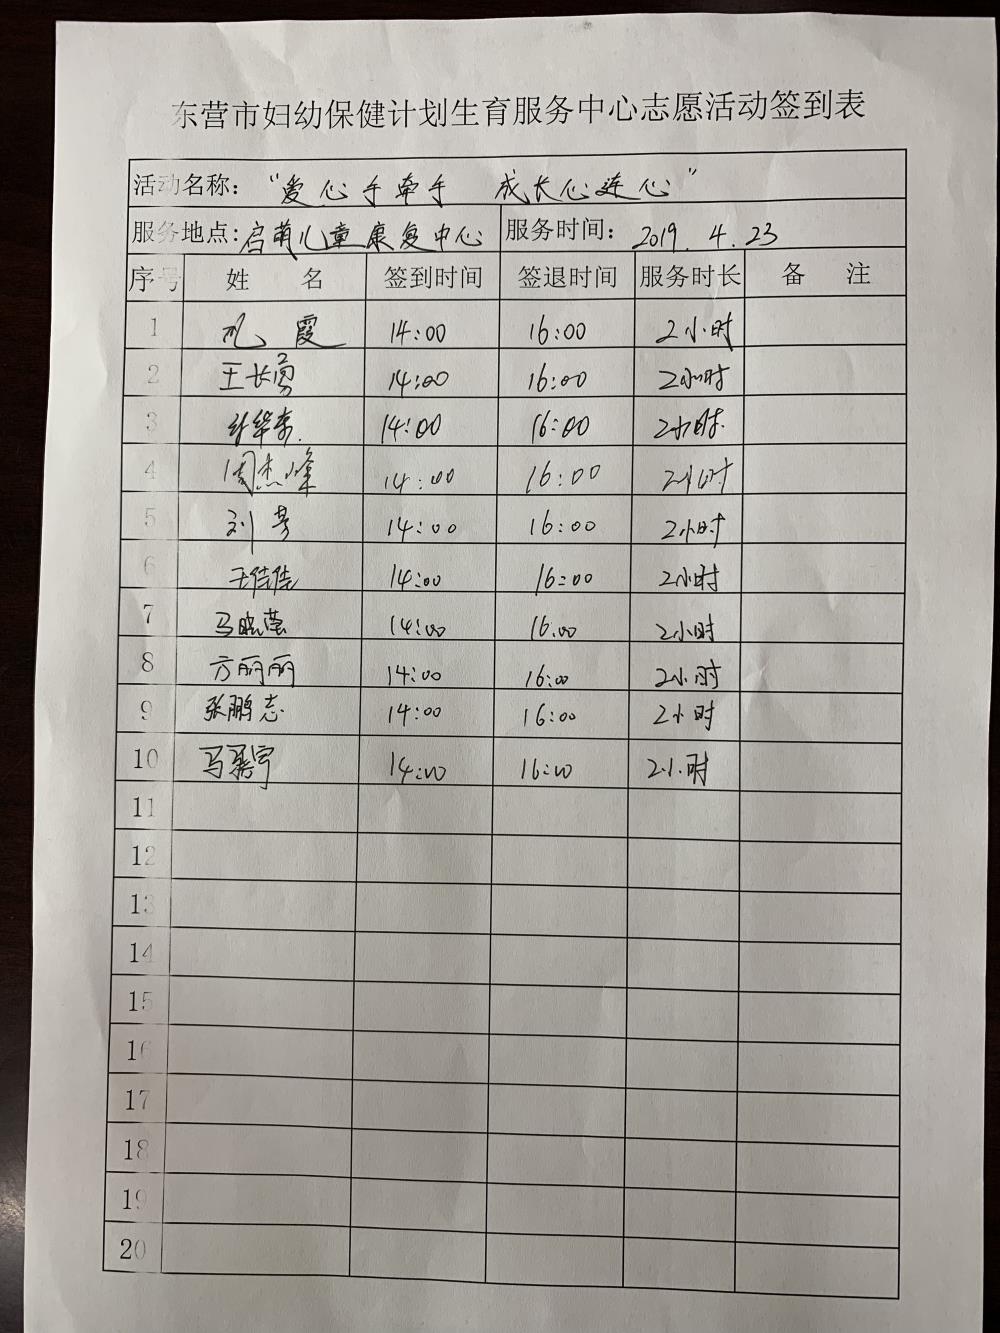 东营市妇幼保健计划生育服务中心志愿活动签到表
活动名称： “爱心手牵手 成长心连心”
服务地点: 启萌儿童康复中心 服务时间： 2019.4.23
序号 姓 名 签到时间 签退时间 服务时长 备 注
1 霞 14:00 16:00 2小时
2 王长勇 14:00 16:00 2小时
3 14:00 16:00 2小时
4 周杰峰 14:00 16:00 2小时
5 刘芳 14:00 16:00 2小时
6 王倩倩 14:00 16:00 2小时
7 马晓莹 14:00 16:00 2小时
8 方丽丽 14:00 16:00 2小时
9 张鹏志 14:00 16:00 2小时
10 马 宇 14:00 16:00 2小时
11
12
13
14
15
16
17
18
19
20